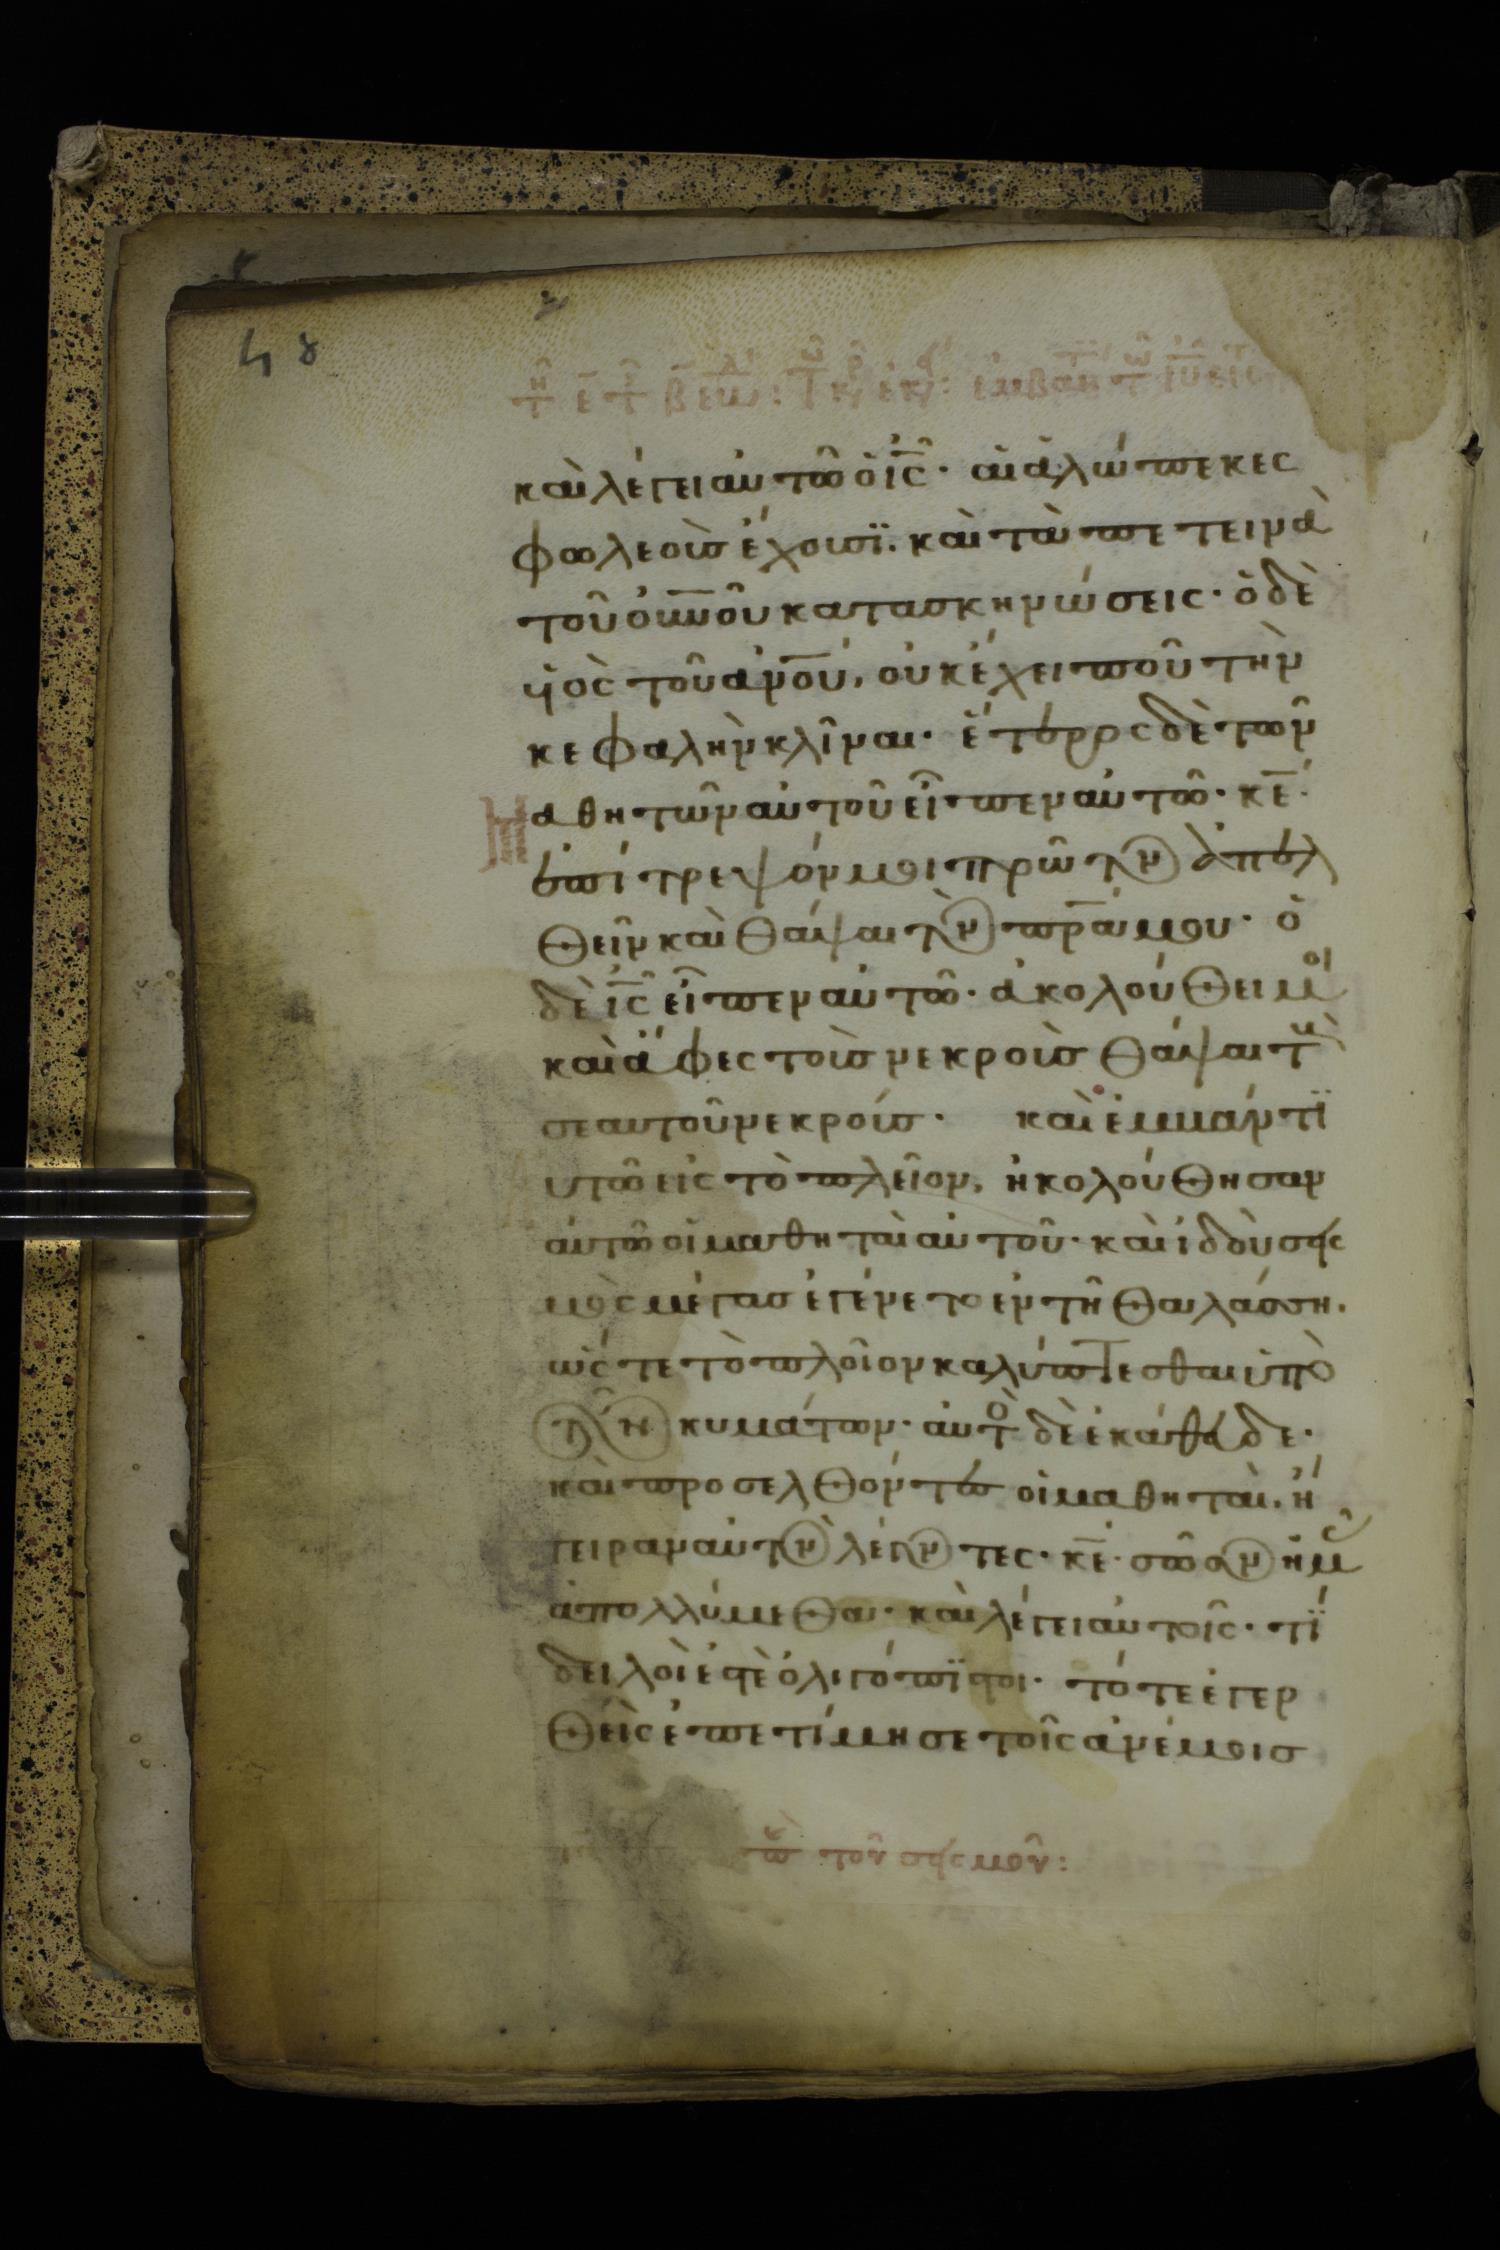 καὶ λέγει αὐτῶ ὁ ις̅· αἱ ἀλώπεκες
φωλεοὺσ ἔχουσϊ. καὶ τὰ πετεινὰ
τοῦ ουνου κατασκηνώσεις· ὁ δὲ
υἱὸς τοῦ ανου, οὐκ ἔχει ποῦ τὴν
κεφαλὴν κλῖναι· ἕτερος δὲ τῶν
μαθητῶν αὐτοῦ εἶπεν αὐτῶ· κε·
ἐπίτρεψόν μοι πρῶτον ἀπελ
θεῖν καὶ θάψαι τὸν πρα μου· ὁ
δὲ ις εἶπεν αὐτῶ· ἀκολούθει μοι
καὶ ἄφες τοὺσ νεκροὺσ θάψαι τοὺς
σεαυτοῦ νεκρούσ· καὶ ἐμμάντϊ
υτῶ εἰς τὸ πλεῖον, ἠκολούθησαν
αὐτῶ οἱ μαθηταὶ αὐτοῦ· καὶ ἰδοὺ σεισ
μὸς μέγασ ἐγένετο ἐν τῆ θαλάσση.
ὥςτε τὸ πλοῖον καλύπτεσθαι ὑπὸ
τῶν κυμάτων· αὐτὸς δὲ ἐκάθευδε·
καὶ προσελθόντες οἱ μαθηταὶ, ἤ
γειραν αὐτὸν λέγοντες· κε· σῶσον ἡμᾶς
ἀπολλύμεθα· καὶ λέγει αὐτοῖς· τΐ
δειλοὶ ἐστὲ ὀλιγόπϊστοι· τότε ἐγερ
θεὶς ἐπετίμησε τοῖς ἀνέμοισ
τὸν σεισμὸν: